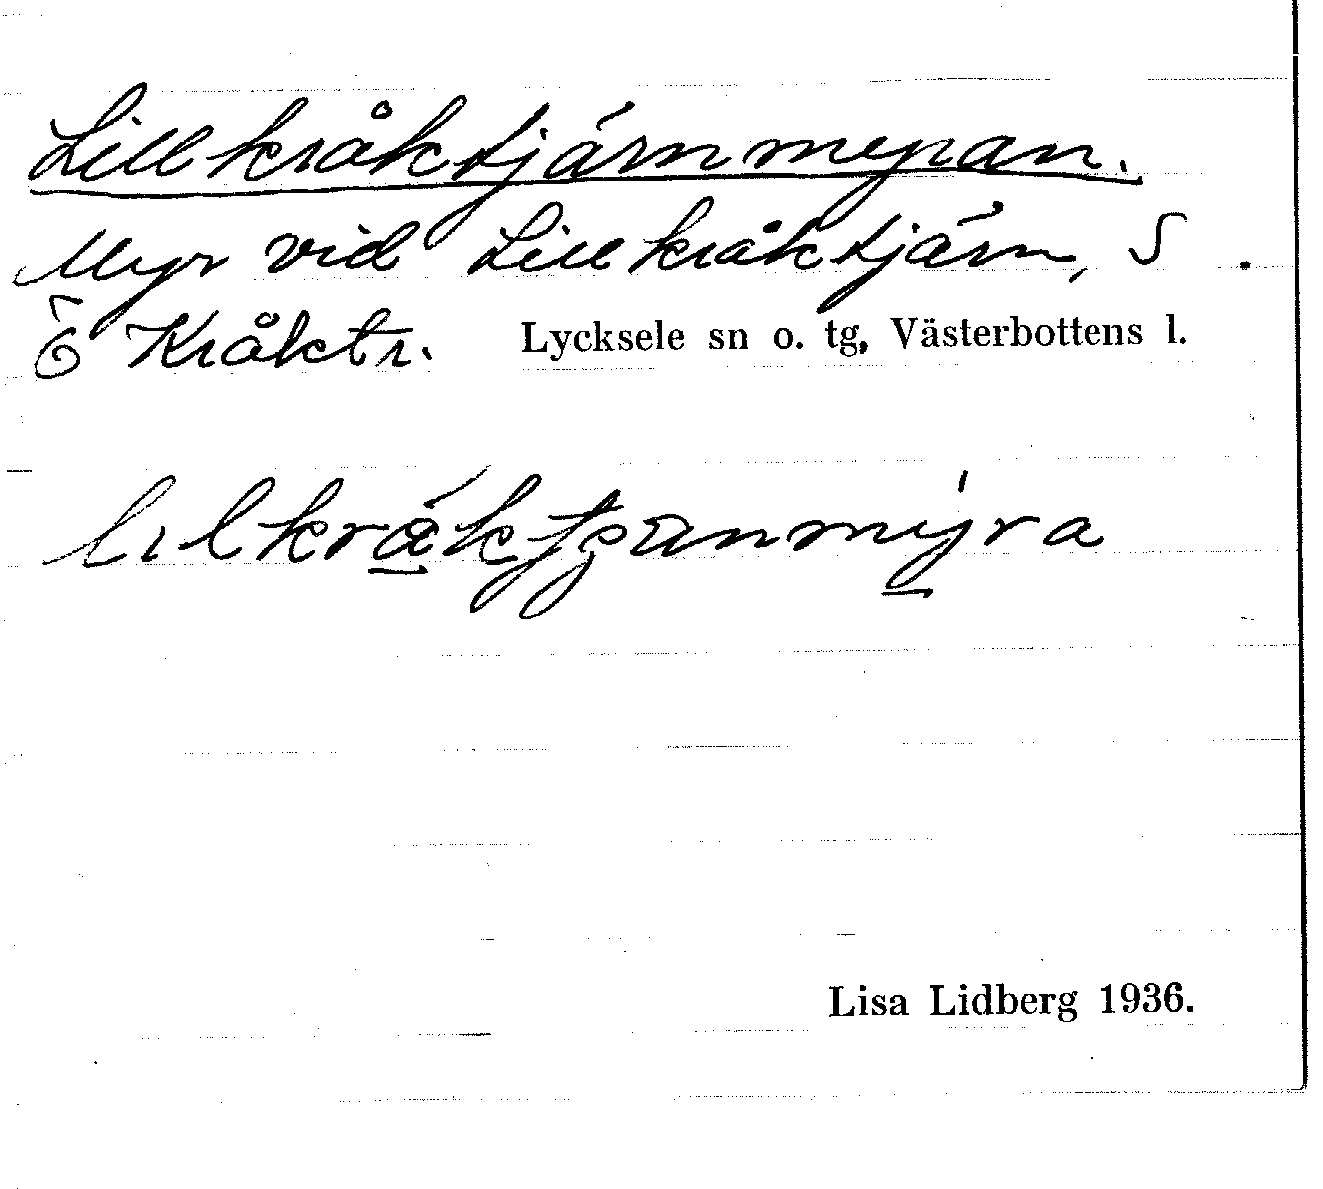 Lillkråktjärnmyran.
Myr vid Lillkråktjärn, S.
Ö Kråktr. Lycksele sn o. tg, Västerbottens l.
Lisa Lidberg 1936.